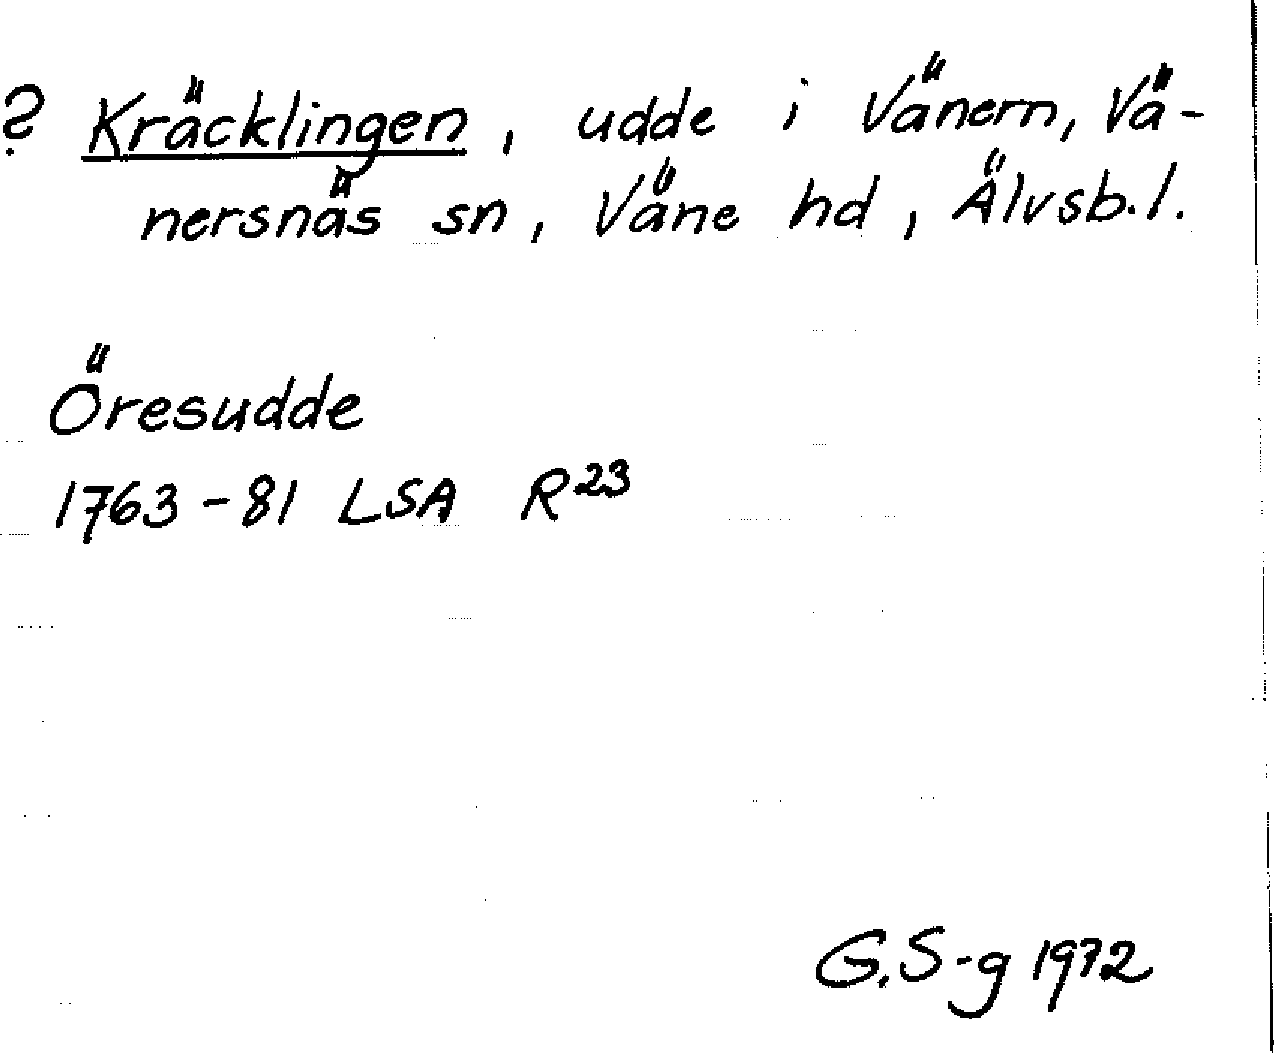 ? Kräcklingen, udde i Vänern, Vä-
nersnäs sn, Väne hd, Älvsb.l.
Öresudde
1763-81 LSA R23
G.S-g 1972